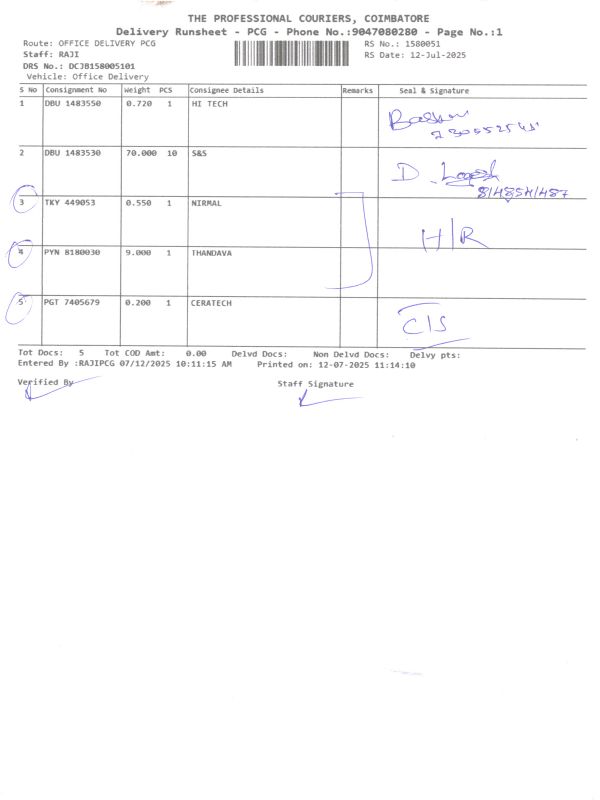 THE PROFESSIONAL COURIERS, COIMBATORE
Delivery Runsheet - PCG - Phone No.:9047080280 - Page No.:1
Route: OFFICE DELIVERY PCG
Staff: RAJI
DRS No.: DCJB158005101
Vehicle: Office Delivery
RS No.: 1580051
RS Date: 12-Jul-2025
S No Consignment No Weight PCS Consignee Details Remarks Seal & Signature
1 DBU 1483550 0.720 1 HI TECH
2 DBU 1483530 70.000 10 S&S
D. Logesh
3 TKY 449053 0.550 1 NIRMAL
H/R
4 PYN 8180030 9.000 1 THANDAVA
5 PGT 7405679 0.200 1 CERATECH
C/S
Tot Docs: 5 Tot COD Amt: 0.00 Delvd Docs: Non Delvd Docs: Delvy pts:
Entered By :RAJIPCG 07/12/2025 10:11:15 AM Printed on: 12-07-2025 11:14:10
Verified By
Staff Signature